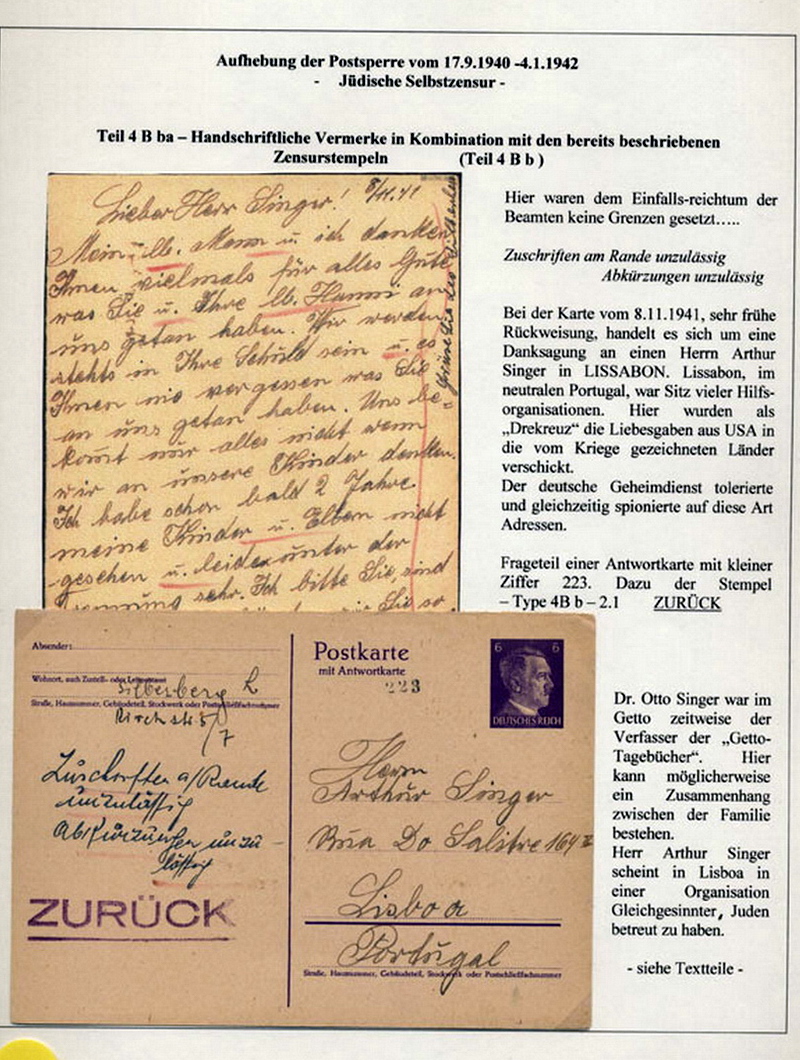 Aufhebung der Postsperre vom 17.9.1940 -4.1.1942
- Jüdische Selbstzensur -
Teil 4 B ba – Handschriftliche Vermerke in Kombination mit den bereits beschriebenen
Zensurstempeln (Teil 4 B b )
8/11.41
Lieber Herr Singer!
Mein lb. Mann u ich danken
Ihnen vielmals für alles Gute
was Sie u. Ihre lb. Hanni an
uns getan haben. Wir werden
stehts in Ihre Schuld sein u. es
Ihnen nie vergessen was Sie
an uns getan haben. Uns be=
komt nur alles nicht wenn
wir an unsere Kinder denken.
Ich habe schon bald 2 Jahre
meine Kinder u. Eltern nicht
gesehen u. leide unter der
Trennung sehr. Ich bitte Sie, sind
Sie so
Hier waren dem Einfalls-reichtum der
Beamten keine Grenzen gesetzt…..
Zuschriften am Rande unzulässig
Abkürzungen unzulässig
Bei der Karte vom 8.11.1941, sehr frühe
Rückweisung, handelt es sich um eine
Danksagung an einen Herrn Arthur
Singer in LISSABON. Lissabon, im
neutralen Portugal, war Sitz vieler Hilfs-
organisationen. Hier wurden als
„Drekreuz“ die Liebesgaben aus USA in
die vom Kriege gezeichneten Länder
verschickt.
Der deutsche Geheimdienst tolerierte
und gleichzeitig spionierte auf diese Art
Adressen.
Frageteil einer Antwortkarte mit kleiner
Ziffer 223. Dazu der Stempel
– Type 4B b – 2.1 ZURÜCK
Absender:
Wohnort, auch Zustell- oder Leitpostamt
Silberberg L
Straße, Hausnummer, Gebäudeteil, Stockwerk oder Postschließfachnummer
Kirchstr
7
Zuschriften a/Rande
unzulässig
Abkürzungen unzu-
lässig
ZURÜCK
Postkarte
mit Antwortkarte
223
6 6
DEUTSCHES REICH
Herrn
Arthur Singer
Rua Do Salitre 164
Lisboa
Portugal
Straße, Hausnummer, Gebäudeteil, Stockwerk oder Postschließfachnummer
Dr. Otto Singer war im
Getto zeitweise der
Verfasser der „Getto-
Tagebücher“. Hier
kann möglicherweise
ein Zusammenhang
zwischen der Familie
bestehen.
Herr Arthur Singer
scheint in Lisboa in
einer Organisation
Gleichgesinnter, Juden
betreut zu haben.
- siehe Textteile -